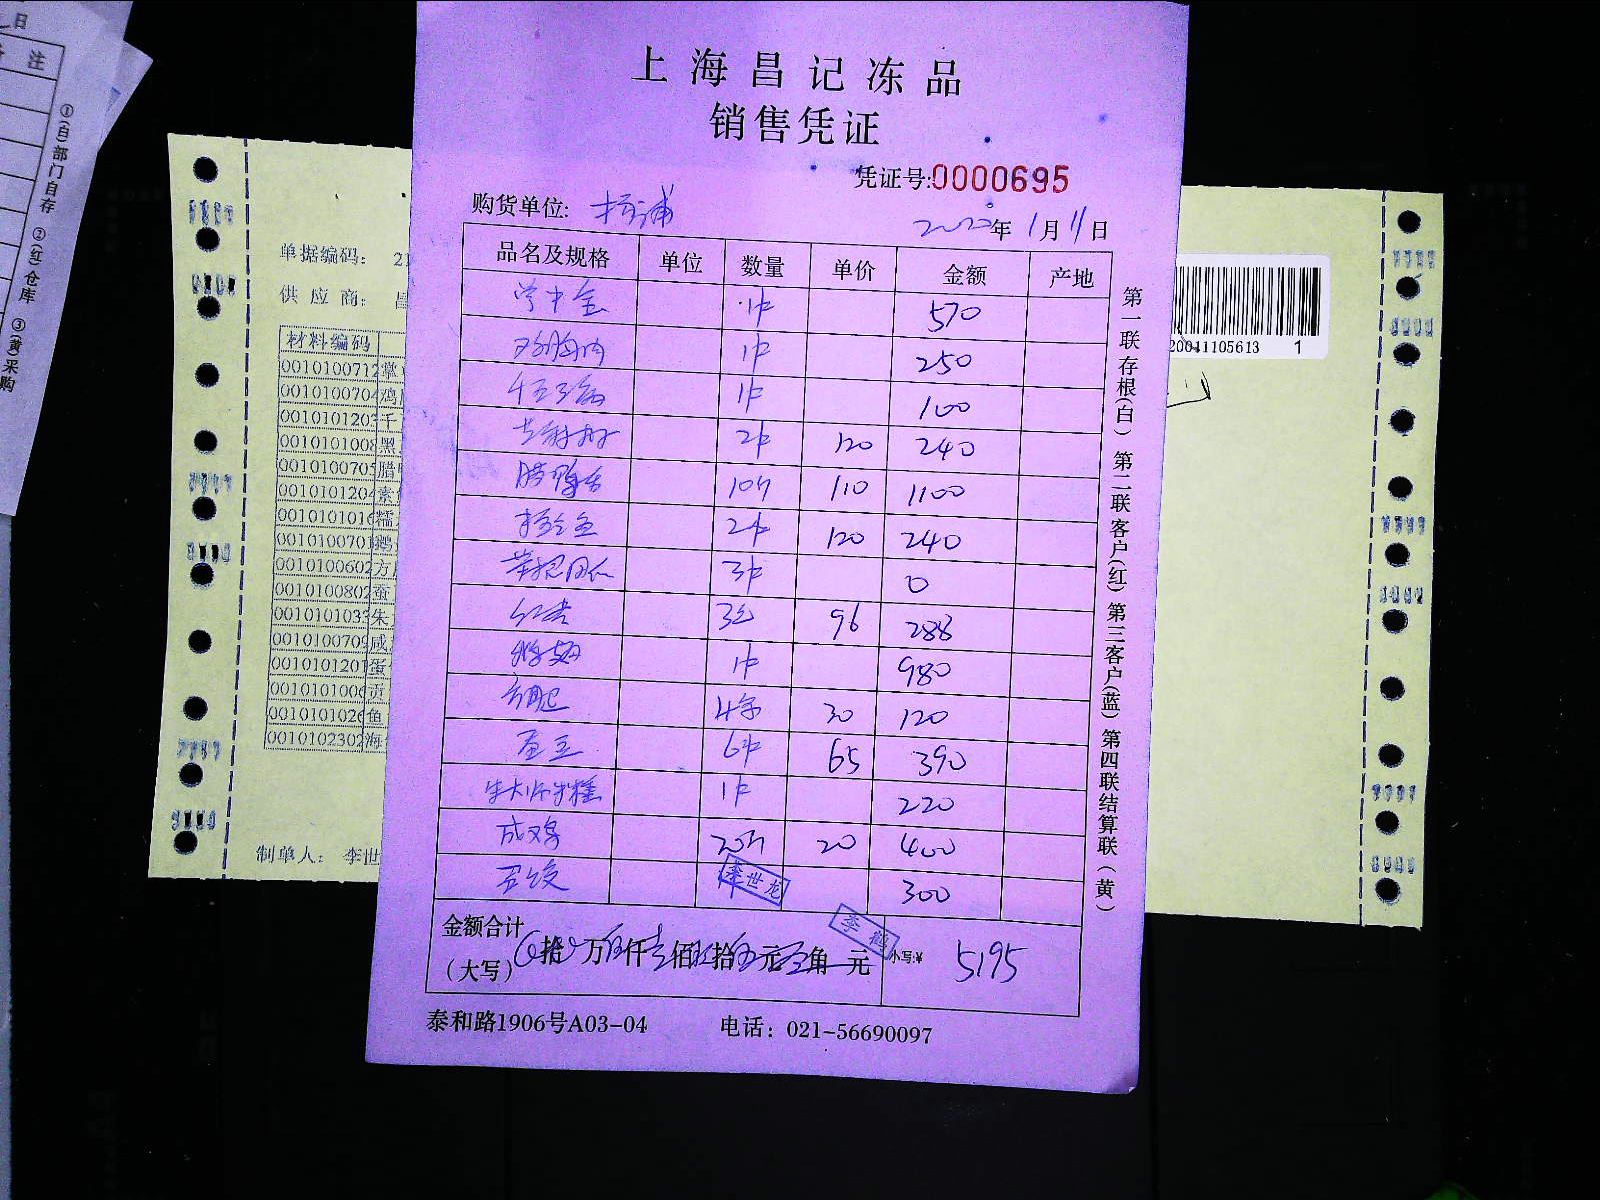 上海昌记冻品
销售凭证
凭证号:0000695
购货单位: 杨浦
2022年1月11日
品名及规格 单位 数量 单价 金额 产地
掌中宝 1件 570
鸡胸肉 1件 250
千页豆腐 1件 100
2件 120 240
腊鸭舌 10斤 110 1100
2件 120 240
3件 0
3包 96 288
1件 980
方肥 4条 30 120
蚕豆 6件 65 390
朱大师 1件 220
咸鸡 20斤 20 400
1件 300
李世龙
李鹤
金额合计
(大写) 拾 万 伍 仟 壹 佰 拾 伍 元 角 元 小写:¥ 5195
泰和路1906号A03-04 电话: 021-56690097
第一联存根(白) 第二联客户(红) 第三客户(蓝) 第四联结算联(黄)
单据编码: 21
供应商:
材料编码
0010100712 掌
0010100704 鸡
001010120 千
001010100 黑
0010100705 腊
001010120 素
0010101016 糯
0010100701 鹅
0010100602 方
0010100802 蚕
001010103 朱
0010100709 咸
0010101201 蛋
0010101006 贡
0010101026 鱼
0010102302 海
制单人: 李世
20041105613 1
日
注
①(白)部门自存 ②(红)仓库 ③(黄)采购